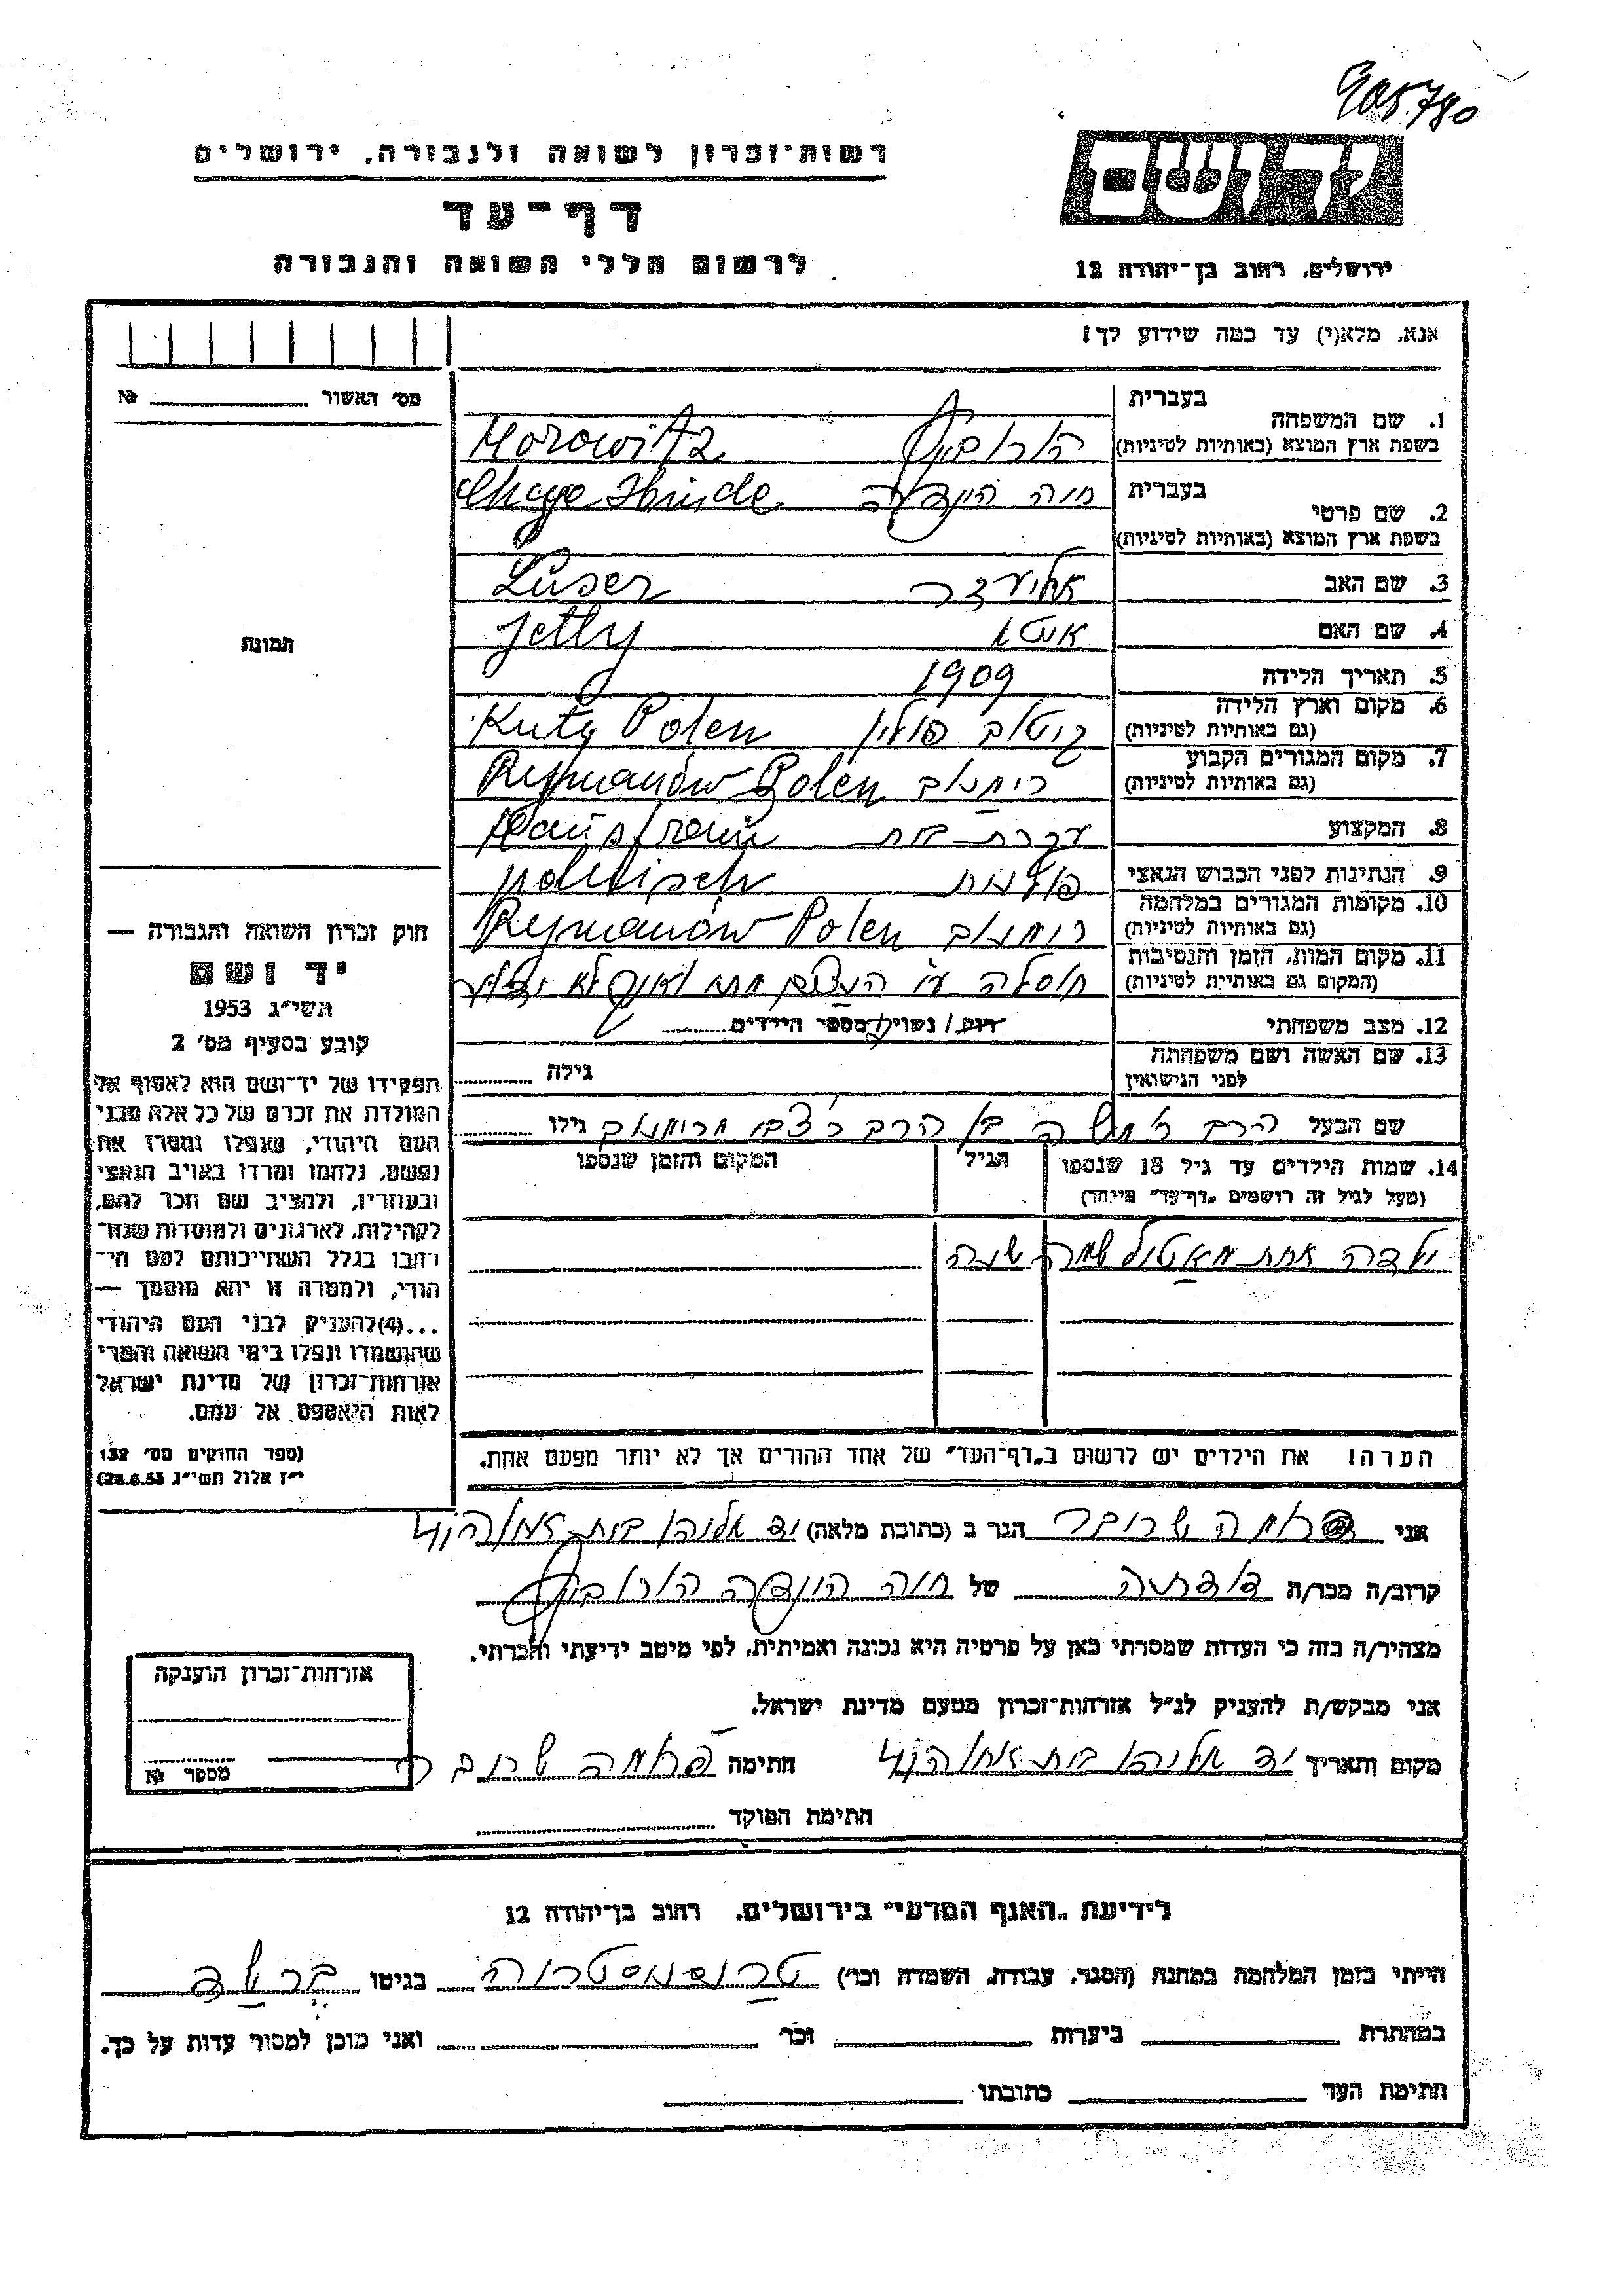 905780
רשות־זכרון לשואה ולגבורה, ירושלים
דף־עד
לרשום חללי השואה והגבורה
יד ושם
ירושלים, רחוב בן־יהודה 12
אנא, מלא(י) עד כמה שידוע לך!
מס׳ האשור № 
1. שם המשפחה
בעברית
הורוביץ
בשפת ארץ המוצא (באותיות לטיניות)
Horowitz
2. שם פרטי
בעברית
חיה הינדע
בשפת ארץ המוצא (באותיות לטיניות)
Chaje Hinde
3. שם האב
אליעזר Luser
4. שם האם
Jetty
5. תאריך הלידה
1909
6. מקום וארץ הלידה
(גם באותיות לטיניות)
קיטוב פולין Kuty Polen
7. מקום המגורים הקבוע
(גם באותיות לטיניות)
רימנוב Rejmanów Polen
8. המקצוע
עקרת בית Hausfrau
9. הנתינות לפני הכבוש הנאצי
פולנית polnisch
10. מקומות המגורים במלחמה
(גם באותיות לטיניות)
רימנוב Rejmanów Polen
11. מקום המות, הזמן והנסיבות
(המקום גם באותיות לטיניות)
חוסלה ע״י הנאצים מתי ואיך לא ידוע
12. מצב משפחתי
רוק / נשוי / מספר הילדים
13. שם האשה ושם משפחתה
לפני הנישואין
גילה
שם הבעל הרב בן הרב מרימנוב גילו
14. שמות הילדים עד גיל 18 שנספו
(מעל לגיל זה רושמים „דף־עד״ מיוחד)
הגיל
המקום והזמן שנספו
ילדה אחת שמה שרה
תמונה
חוק זכרון השואה והגבורה —
יד ושם
תשי״ג 1953
קובע בסעיף מס׳ 2
תפקידו של יד־ושם הוא לאסוף אל
המולדת את זכרם של כל אלה מבני
העם היהודי, שנפלו ומסרו את
נפשם, נלחמו ומרדו באויב הנאצי
ובעוזריו, ולהציב שם וזכר להם,
לקהילות, לארגונים ולמוסדות שנח־
רבו בגלל השתייכותם לעם הי־
הודי, ולמטרה זו יהא מוסמך —
...(4)להעניק לבני העם היהודי
שהושמדו ונפלו בימי השואה והמרי
אזרחות־זכרון של מדינת ישראל
לאות היאספם אל עמם.
(ספר החוקים מס׳ 132
י״ז אלול תשי״ג 28.8.53)
הערה! את הילדים יש לרשום ב„דף־העד״ של אחד ההורים אך לא יותר מפעם אחת.
אני שרובר הגר ב (כתובת מלאה) יד אליהו
קרוב/ה מכר/ה דודתה של חיה הינדה הורוביץ
מצהיר/ה בזה כי העדות שמסרתי כאן על פרטיה היא נכונה ואמיתית, לפי מיטב ידיעתי והכרתי.
אני מבקש/ת להעניק לנ״ל אזרחות־זכרון מטעם מדינת ישראל.
מקום ותאריך יד אליהו חתימה שרובר
חתימת הפוקד
אזרחות־זכרון הוענקה
מספר №
לידיעת „האגף המדעי״ בירושלים, רחוב בן־יהודה 12
הייתי בזמן המלחמה במחנה (הסגר, עבודה, השמדה וכו׳) טרנסניסטריה בגיטו ברשד
במחתרת ביערות וכו׳ ואני מוכן למסור עדות על כך.
חתימת העד כתובתו